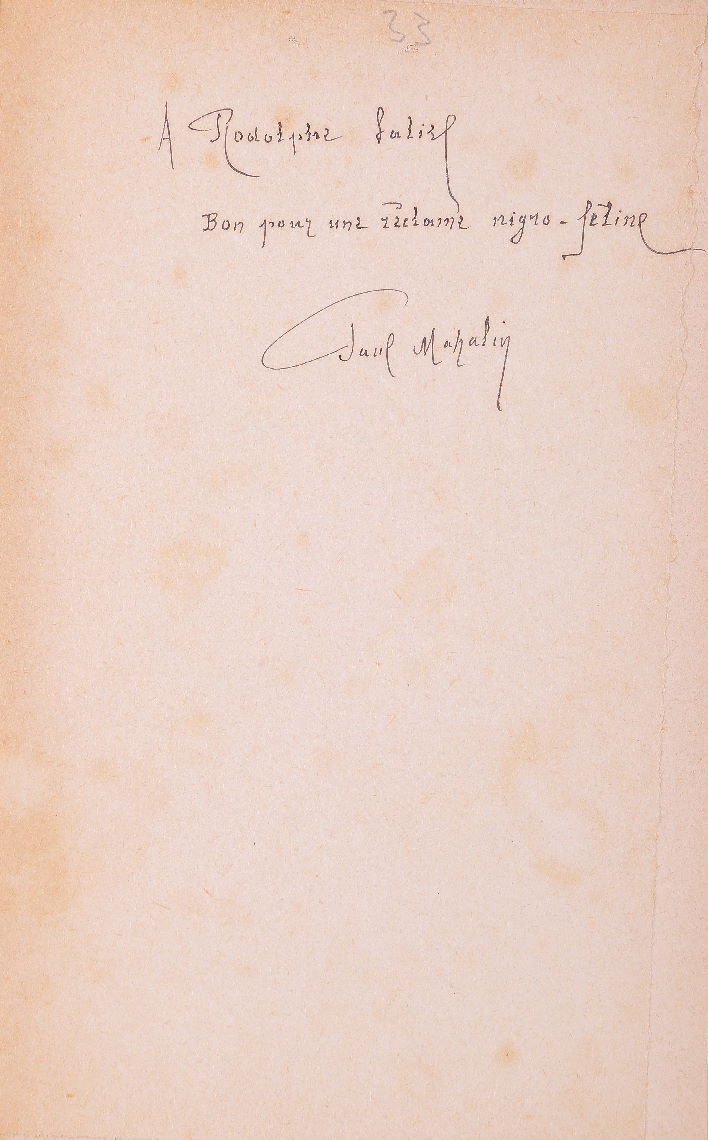 33
A Rodolphe Salis
Bon pour une réclame nigro-féline
Paul Mahalin